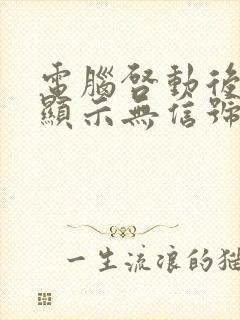 電腦啓動後
顯示無信號
一生流浪的猫